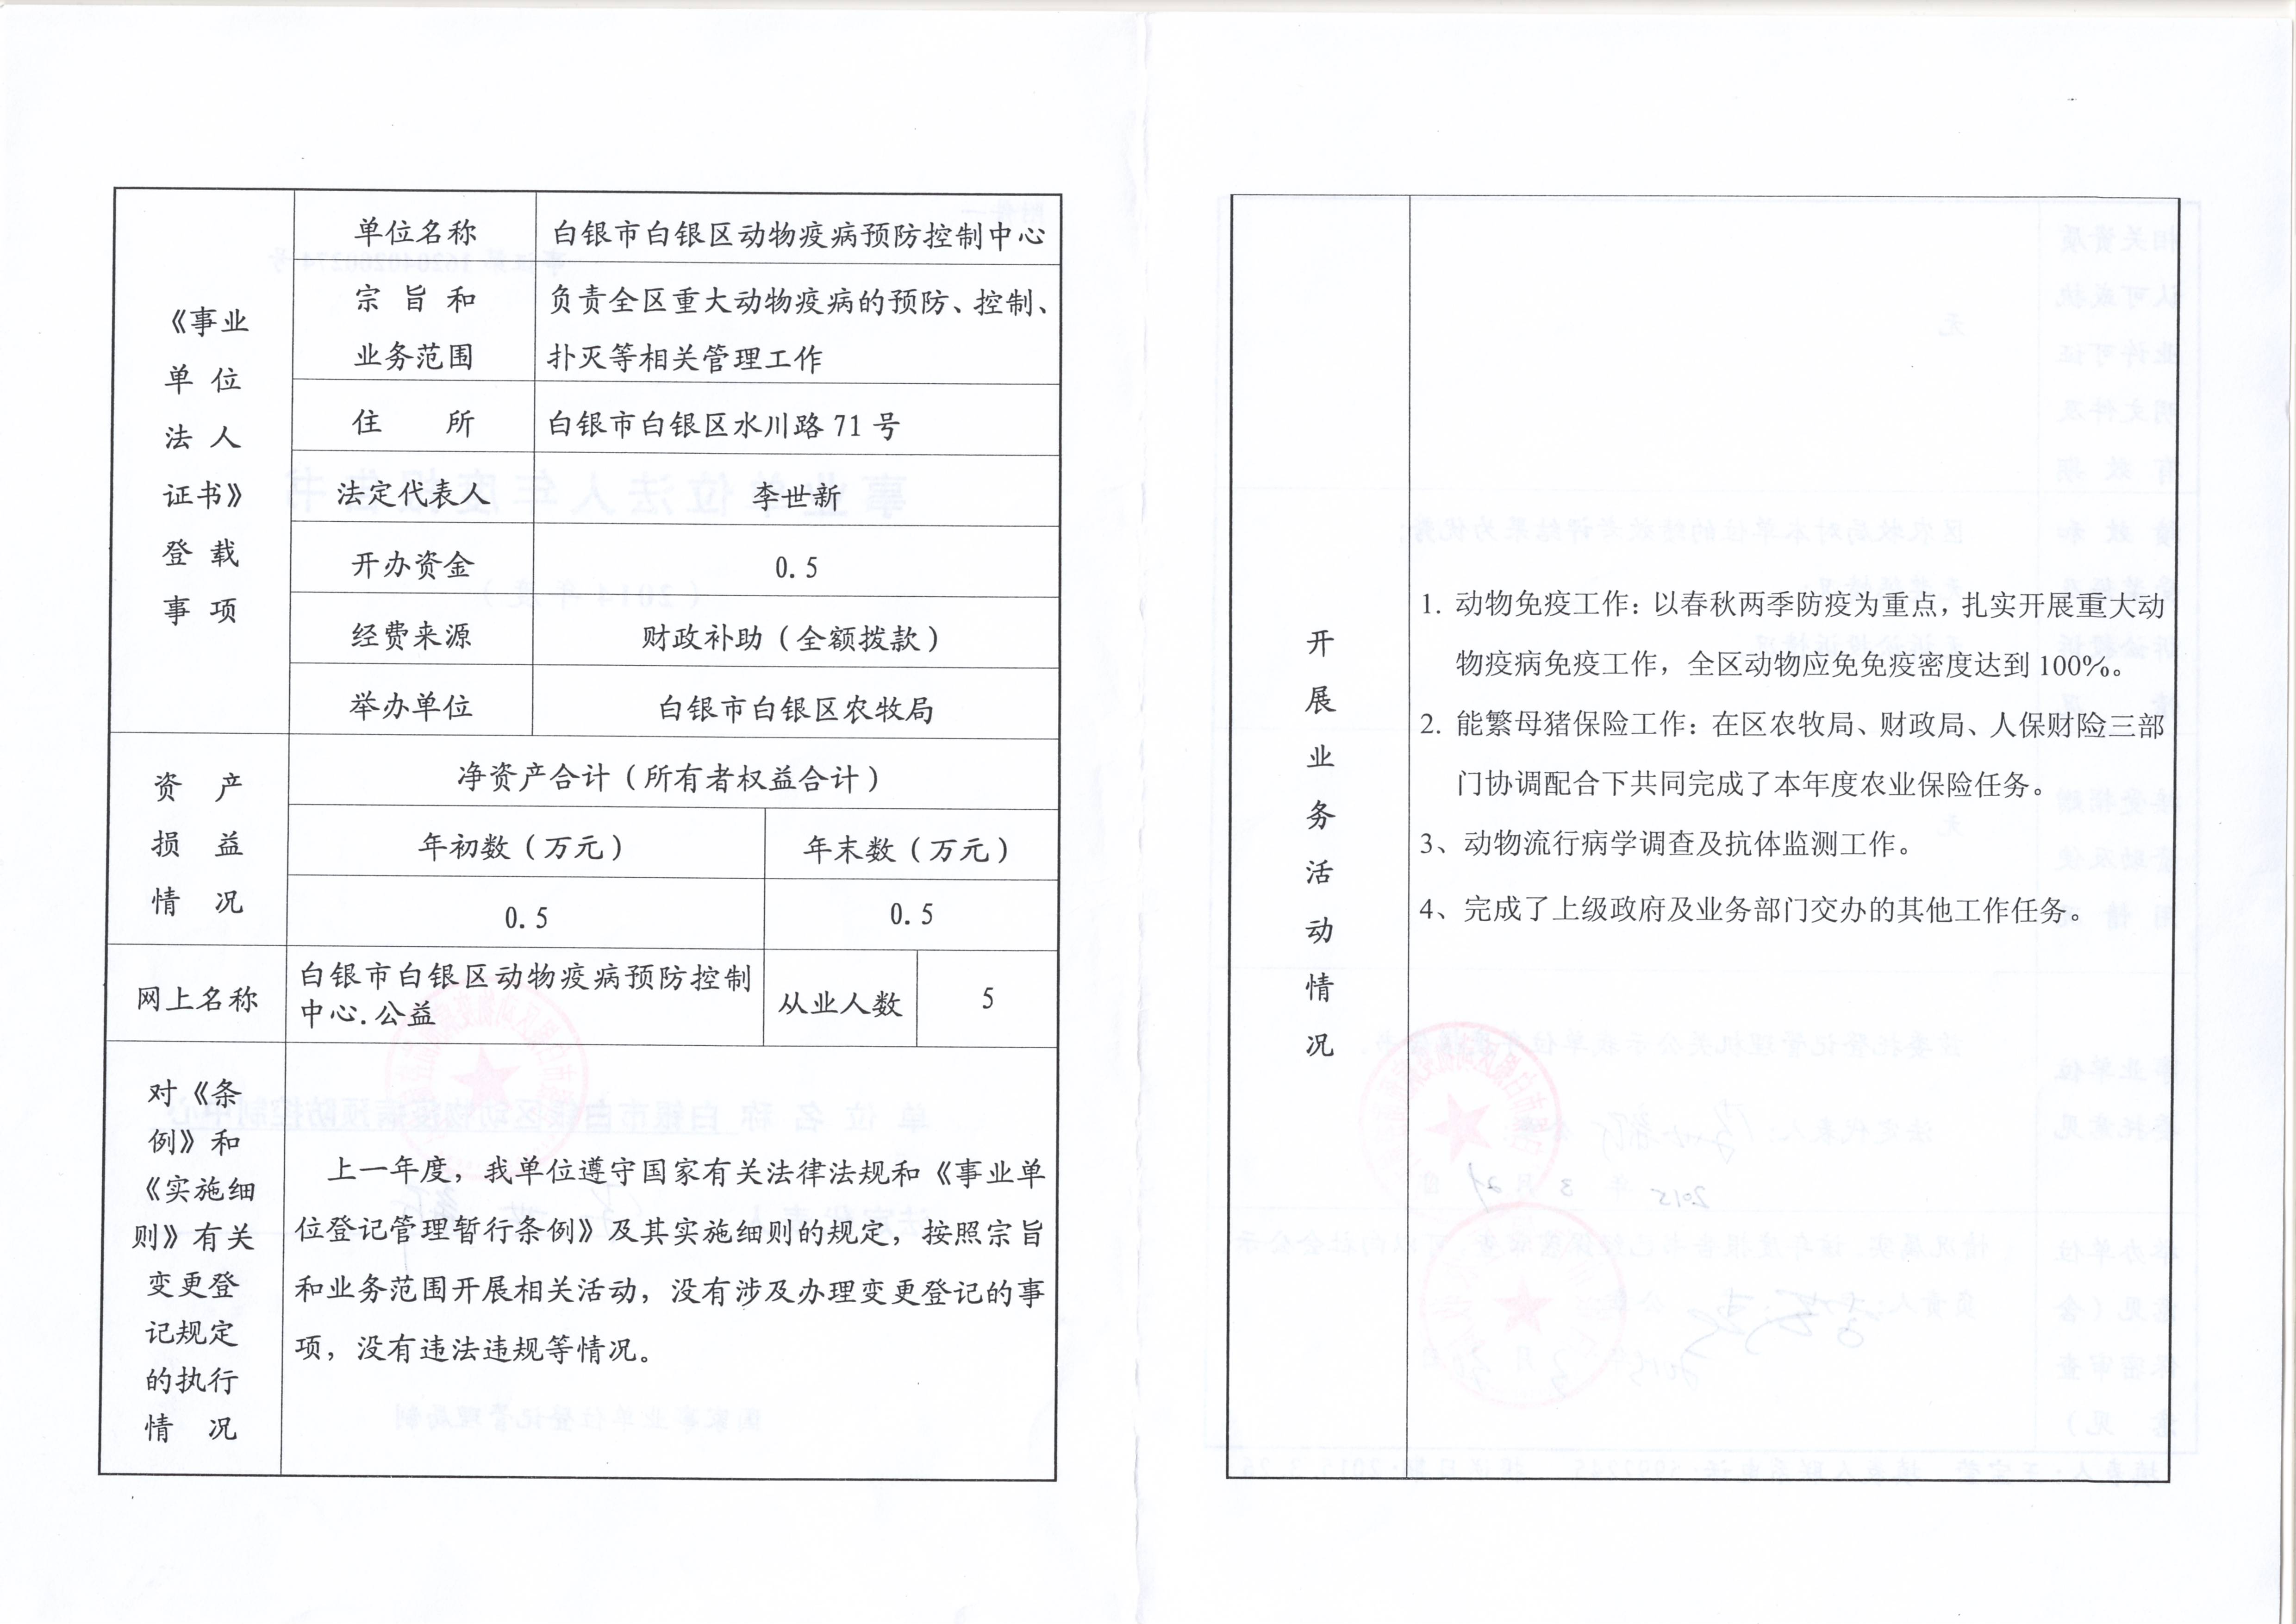 《事业
单 位
法 人
证书》
登 载
事 项
单位名称
白银市白银区动物疫病预防控制中心
宗 旨 和
业务范围
负责全区重大动物疫病的预防、控制、
扑灭等相关管理工作
住 所
白银市白银区水川路 71 号
法定代表人
李世新
开办资金
0.5
经费来源
财政补助（全额拨款）
举办单位
白银市白银区农牧局
资 产
损 益
情 况
净资产合计（所有者权益合计）
年初数（万元）
年末数（万元）
0.5
0.5
网上名称
白银市白银区动物疫病预防控制
中心.公益
从业人数
5
对《条
例》和
《实施细
则》有关
变更登
记规定
的执行
情 况
上一年度，我单位遵守国家有关法律法规和《事业单
位登记管理暂行条例》及其实施细则的规定，按照宗旨
和业务范围开展相关活动，没有涉及办理变更登记的事
项，没有违法违规等情况。
开
展
业
务
活
动
情
况
1. 动物免疫工作：以春秋两季防疫为重点，扎实开展重大动
物疫病免疫工作，全区动物应免免疫密度达到 100%。
2. 能繁母猪保险工作：在区农牧局、财政局、人保财险三部
门协调配合下共同完成了本年度农业保险任务。
3、动物流行病学调查及抗体监测工作。
4、完成了上级政府及业务部门交办的其他工作任务。